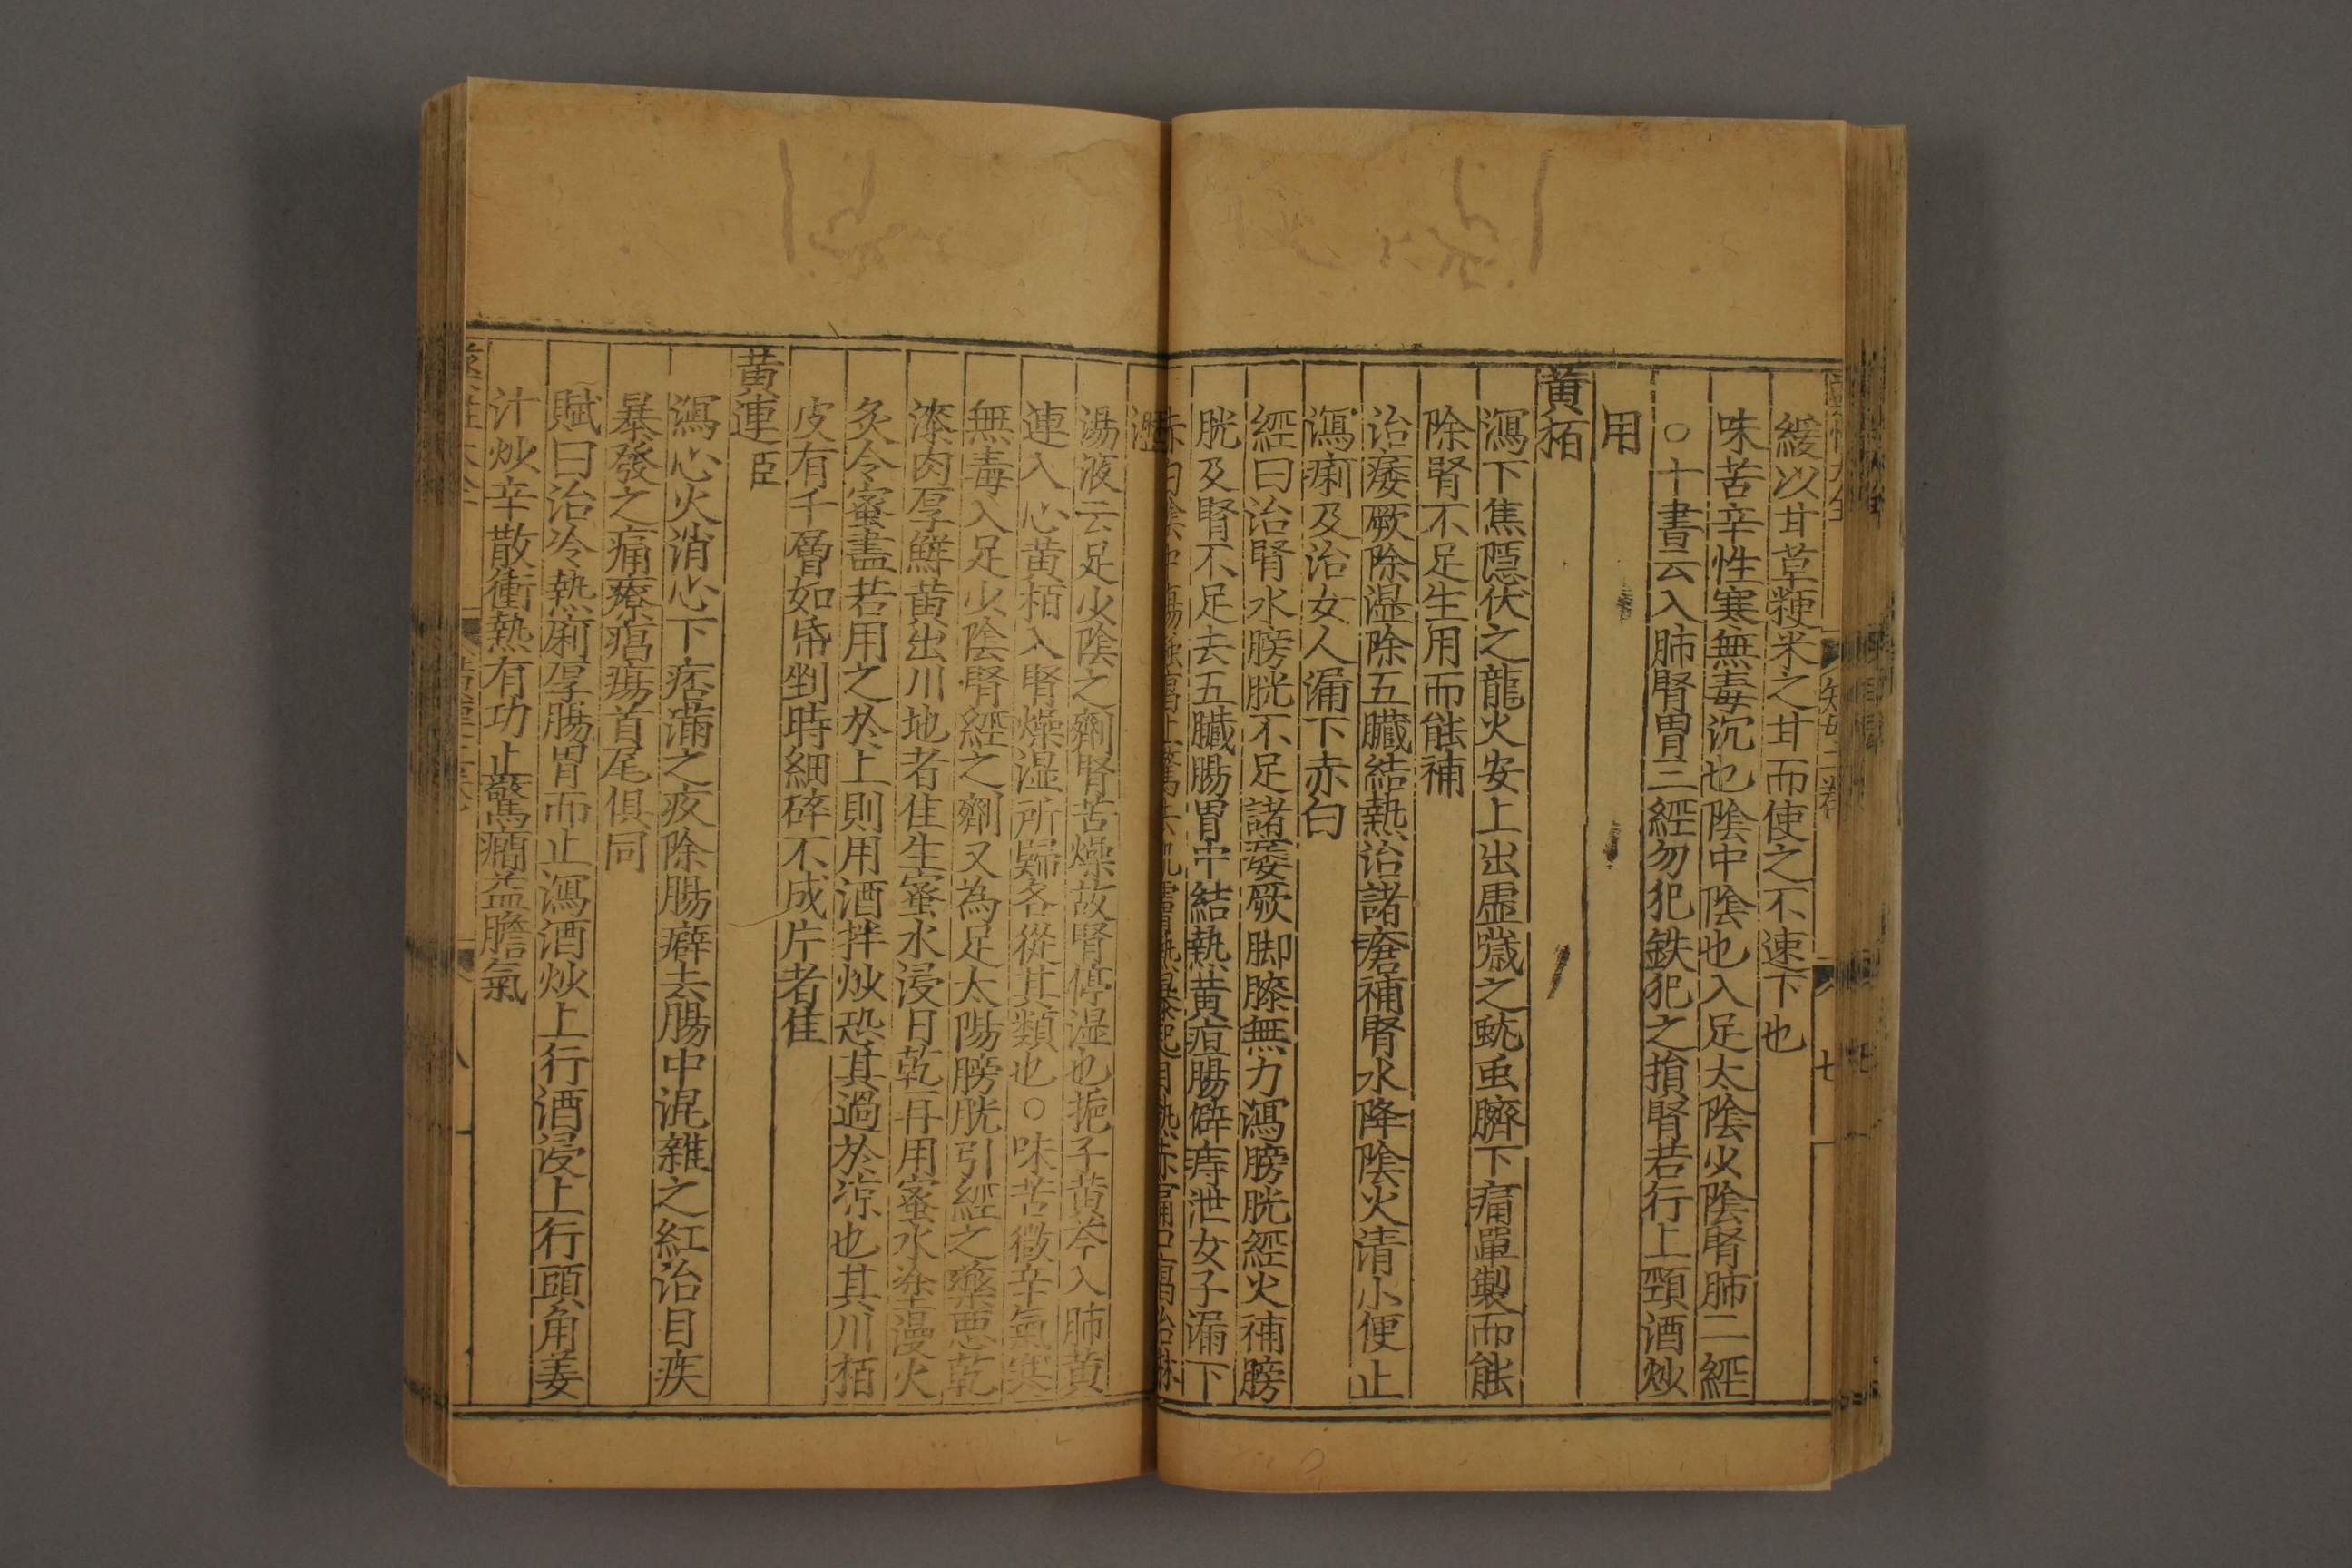 緩以甘草粳米之甘而使之不速下也
味苦辛性寒無毒沉也陰中陰也入足太陰少陰腎肺二經
○十書云入肺腎胃三經勿犯鉄犯之損腎若行上頸酒炒
用
黄栢
瀉下焦隱伏之龍火安上出虛歲之蚘虫臍下痛單製而能
除腎不足生用而能補
治痿厥除湿除五臟結熱治諸瘡補腎水降陰火清小便止
瀉痢及治女人漏下赤白
經曰治腎水膀胱不足諸痿厥脚膝無力瀉膀胱經火補膀
胱及腎不足去五臟腸胃中結熱黄疸腸僻痔泄女子漏下
赤白陰
瀝
湯液云足少陰之劑腎苦燥故腎停湿也扼子黄芩入肺黄
連入心黄栢入腎燥湿所歸各從其類也○味苦微辛氣寒
無毒入足少陰腎經之劑又為足太陽膀胱引經之藥悪乾
漆肉厚鮮黄出川地者佳生蜜水浸日乾再用蜜水塗漫火
炙令蜜盡若用之於上則用酒拌炒恐其過於涼也其川栢
皮有千層如帋剉時細碎不成片者佳
黄連臣
瀉心火消心下痞滿之疾除腸癖去腸中混雜之紅治目疾
暴發之痛療瘡瘍首尾俱同
賦曰治冷熱痢厚腸胃而止瀉酒炒上行酒浸上行頭角姜
汁炒辛散衝熱有功止驚癎益膽氣